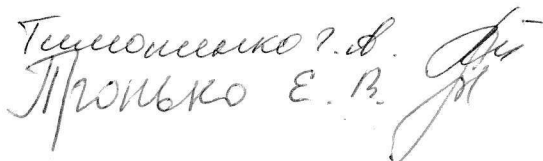 Тимошенко Г. А.
Пронько Е. В.